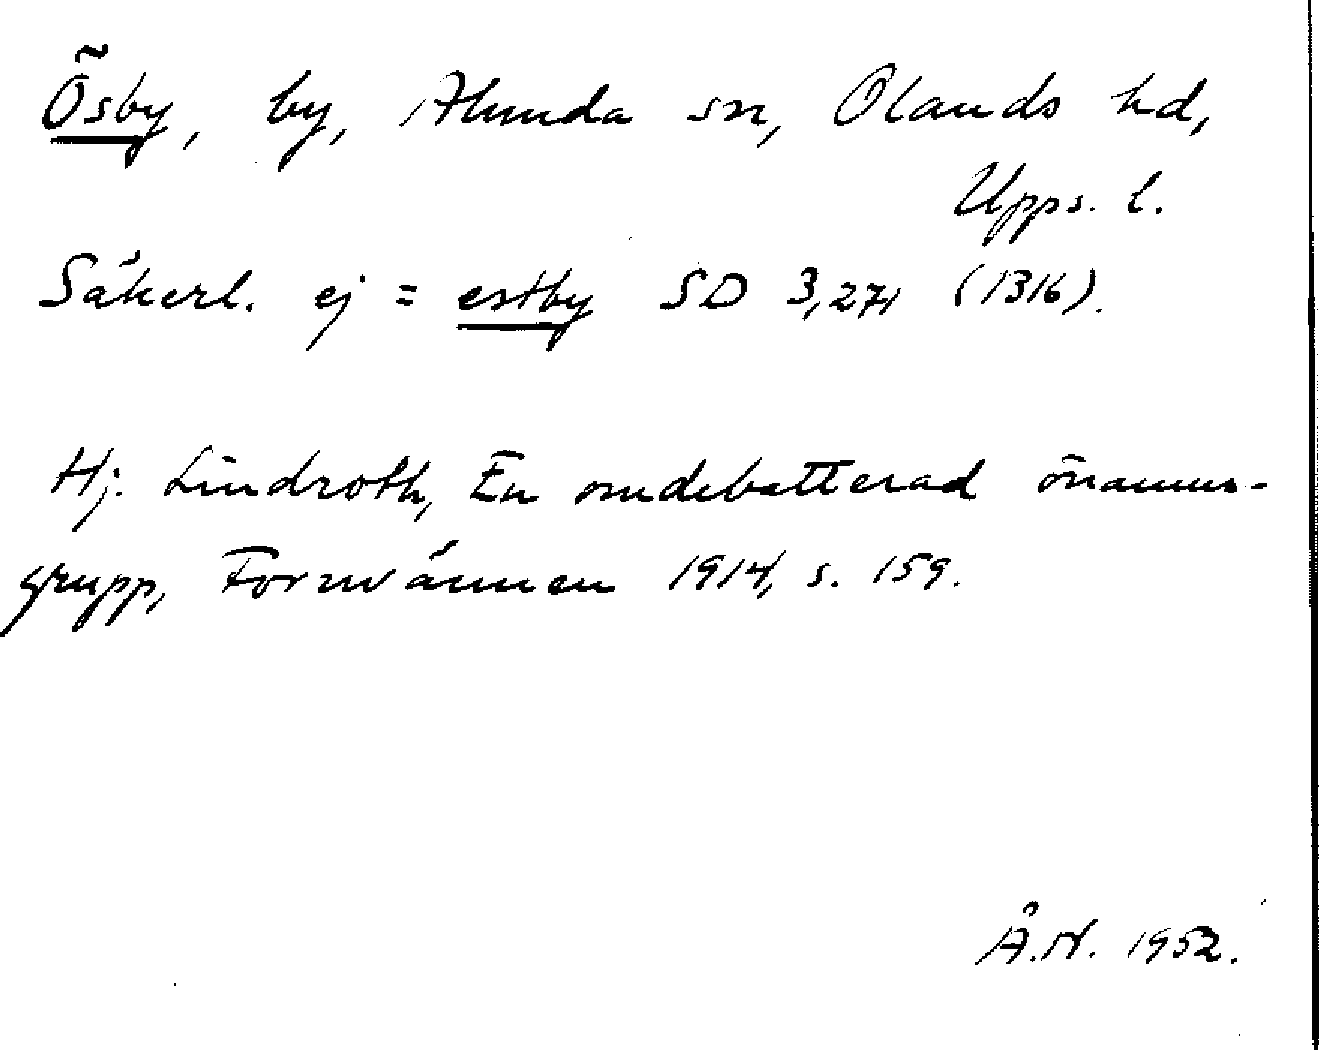 Ösby, by, Alunda sn, Olands hd,
Upps. l.
Säkerl. ej = estby SD 3,271 (1316).
Hj. Lindroth, En omdebatterad önamns-
grupp, Fornvännen 1914, s. 159.
Å.N. 1952.